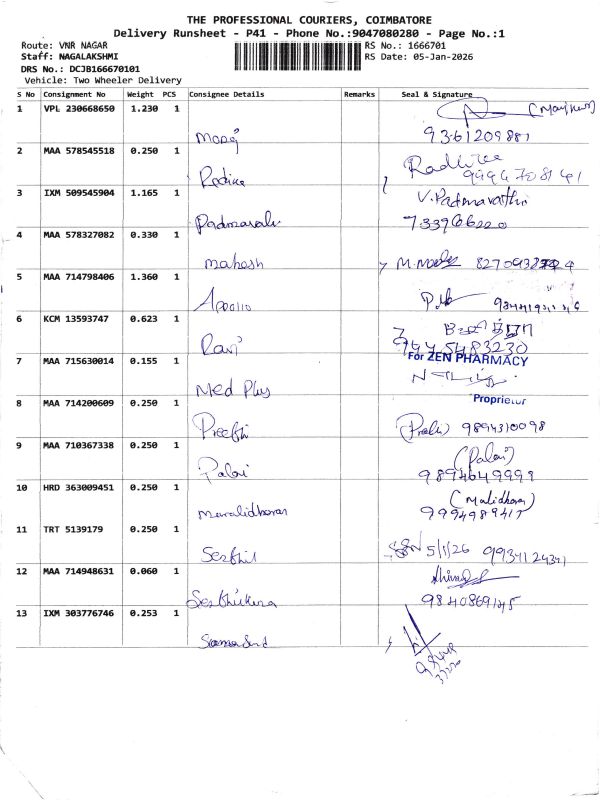 THE PROFESSIONAL COURIERS, COIMBATORE
Delivery Runsheet - P41 - Phone No.:9047080280 - Page No.:1
Route: VNR NAGAR
RS No.: 1666701
Staff: NAGALAKSHMI
RS Date: 05-Jan-2026
DRS No.: DCJB166670101
Vehicle: Two Wheeler Delivery
S No Consignment No Weight PCS Consignee Details Remarks Seal & Signature
1 VPL 230668650 1.230 1
9361209881
2 MAA 578545518 0.250 1
3 IXM 509545904 1.165 1 V.Padmavathi
Padmavathi 7339666220
4 MAA 578327082 0.330 1
mahesh
5 MAA 714798406 1.360 1
Apollo
6 KCM 13593747 0.623 1
Ravi 9945483230
For ZEN PHARMACY
7 MAA 715630014 0.155 1
Med Plus
Proprietor
8 MAA 714200609 0.250 1
Preethi 9894310098
9 MAA 710367338 0.250 1 (Palani)
Palani 9894649999
10 HRD 363009451 0.250 1
9994989417
11 TRT 5139179 0.250 1
5/1/26
12 MAA 714948631 0.060 1
9840869145
13 IXM 303776746 0.253 1